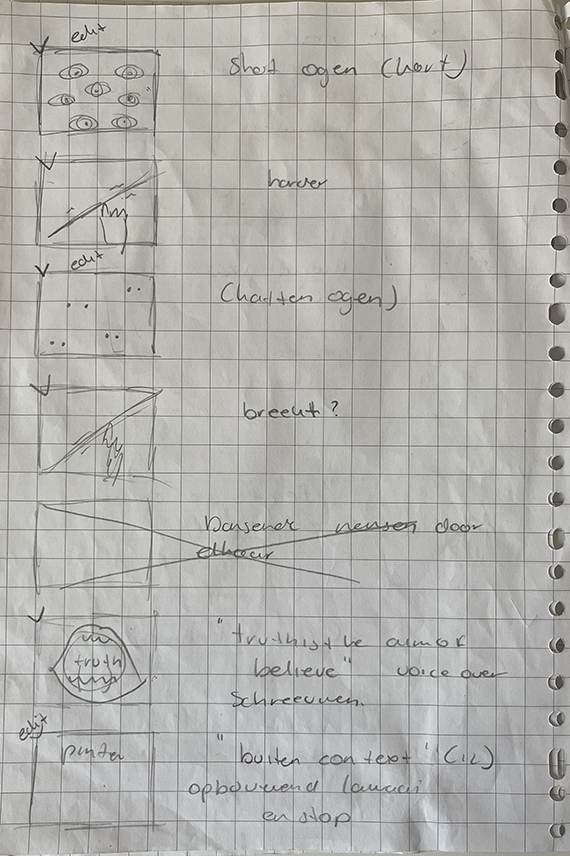 edit
Shot ogen (hort)
harder
edit
(halten ogen)
breekt?
Dansende mensen door
elkaar
"truth is the aim of
believe" voice over
schreeuwen.
truth
edit
"buiten context" (ik)
opbouwend lawaai
en stop